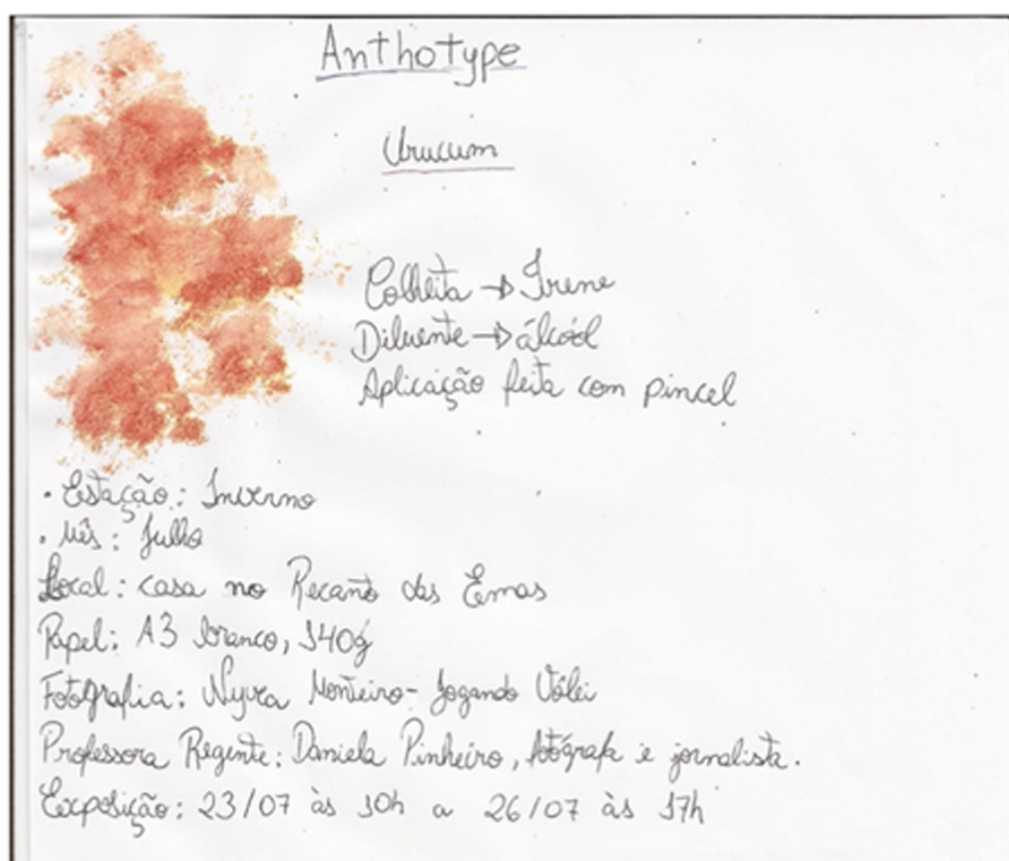 Anthotype
Urucum
Colheita → Irene
Diluente → álcool
Aplicação feita com pincel
• Estação: Inverno
• Mês: Julho
Local: casa no Recanto das Emas
Papel: A3 branco, 140g
Fotografia: Nyvea Monteiro - Jogando Vôlei
Professora Regente: Daniela Pinheiro, fotógrafa e jornalista.
Exposição: 23/07 às 10h a 26/07 às 17h